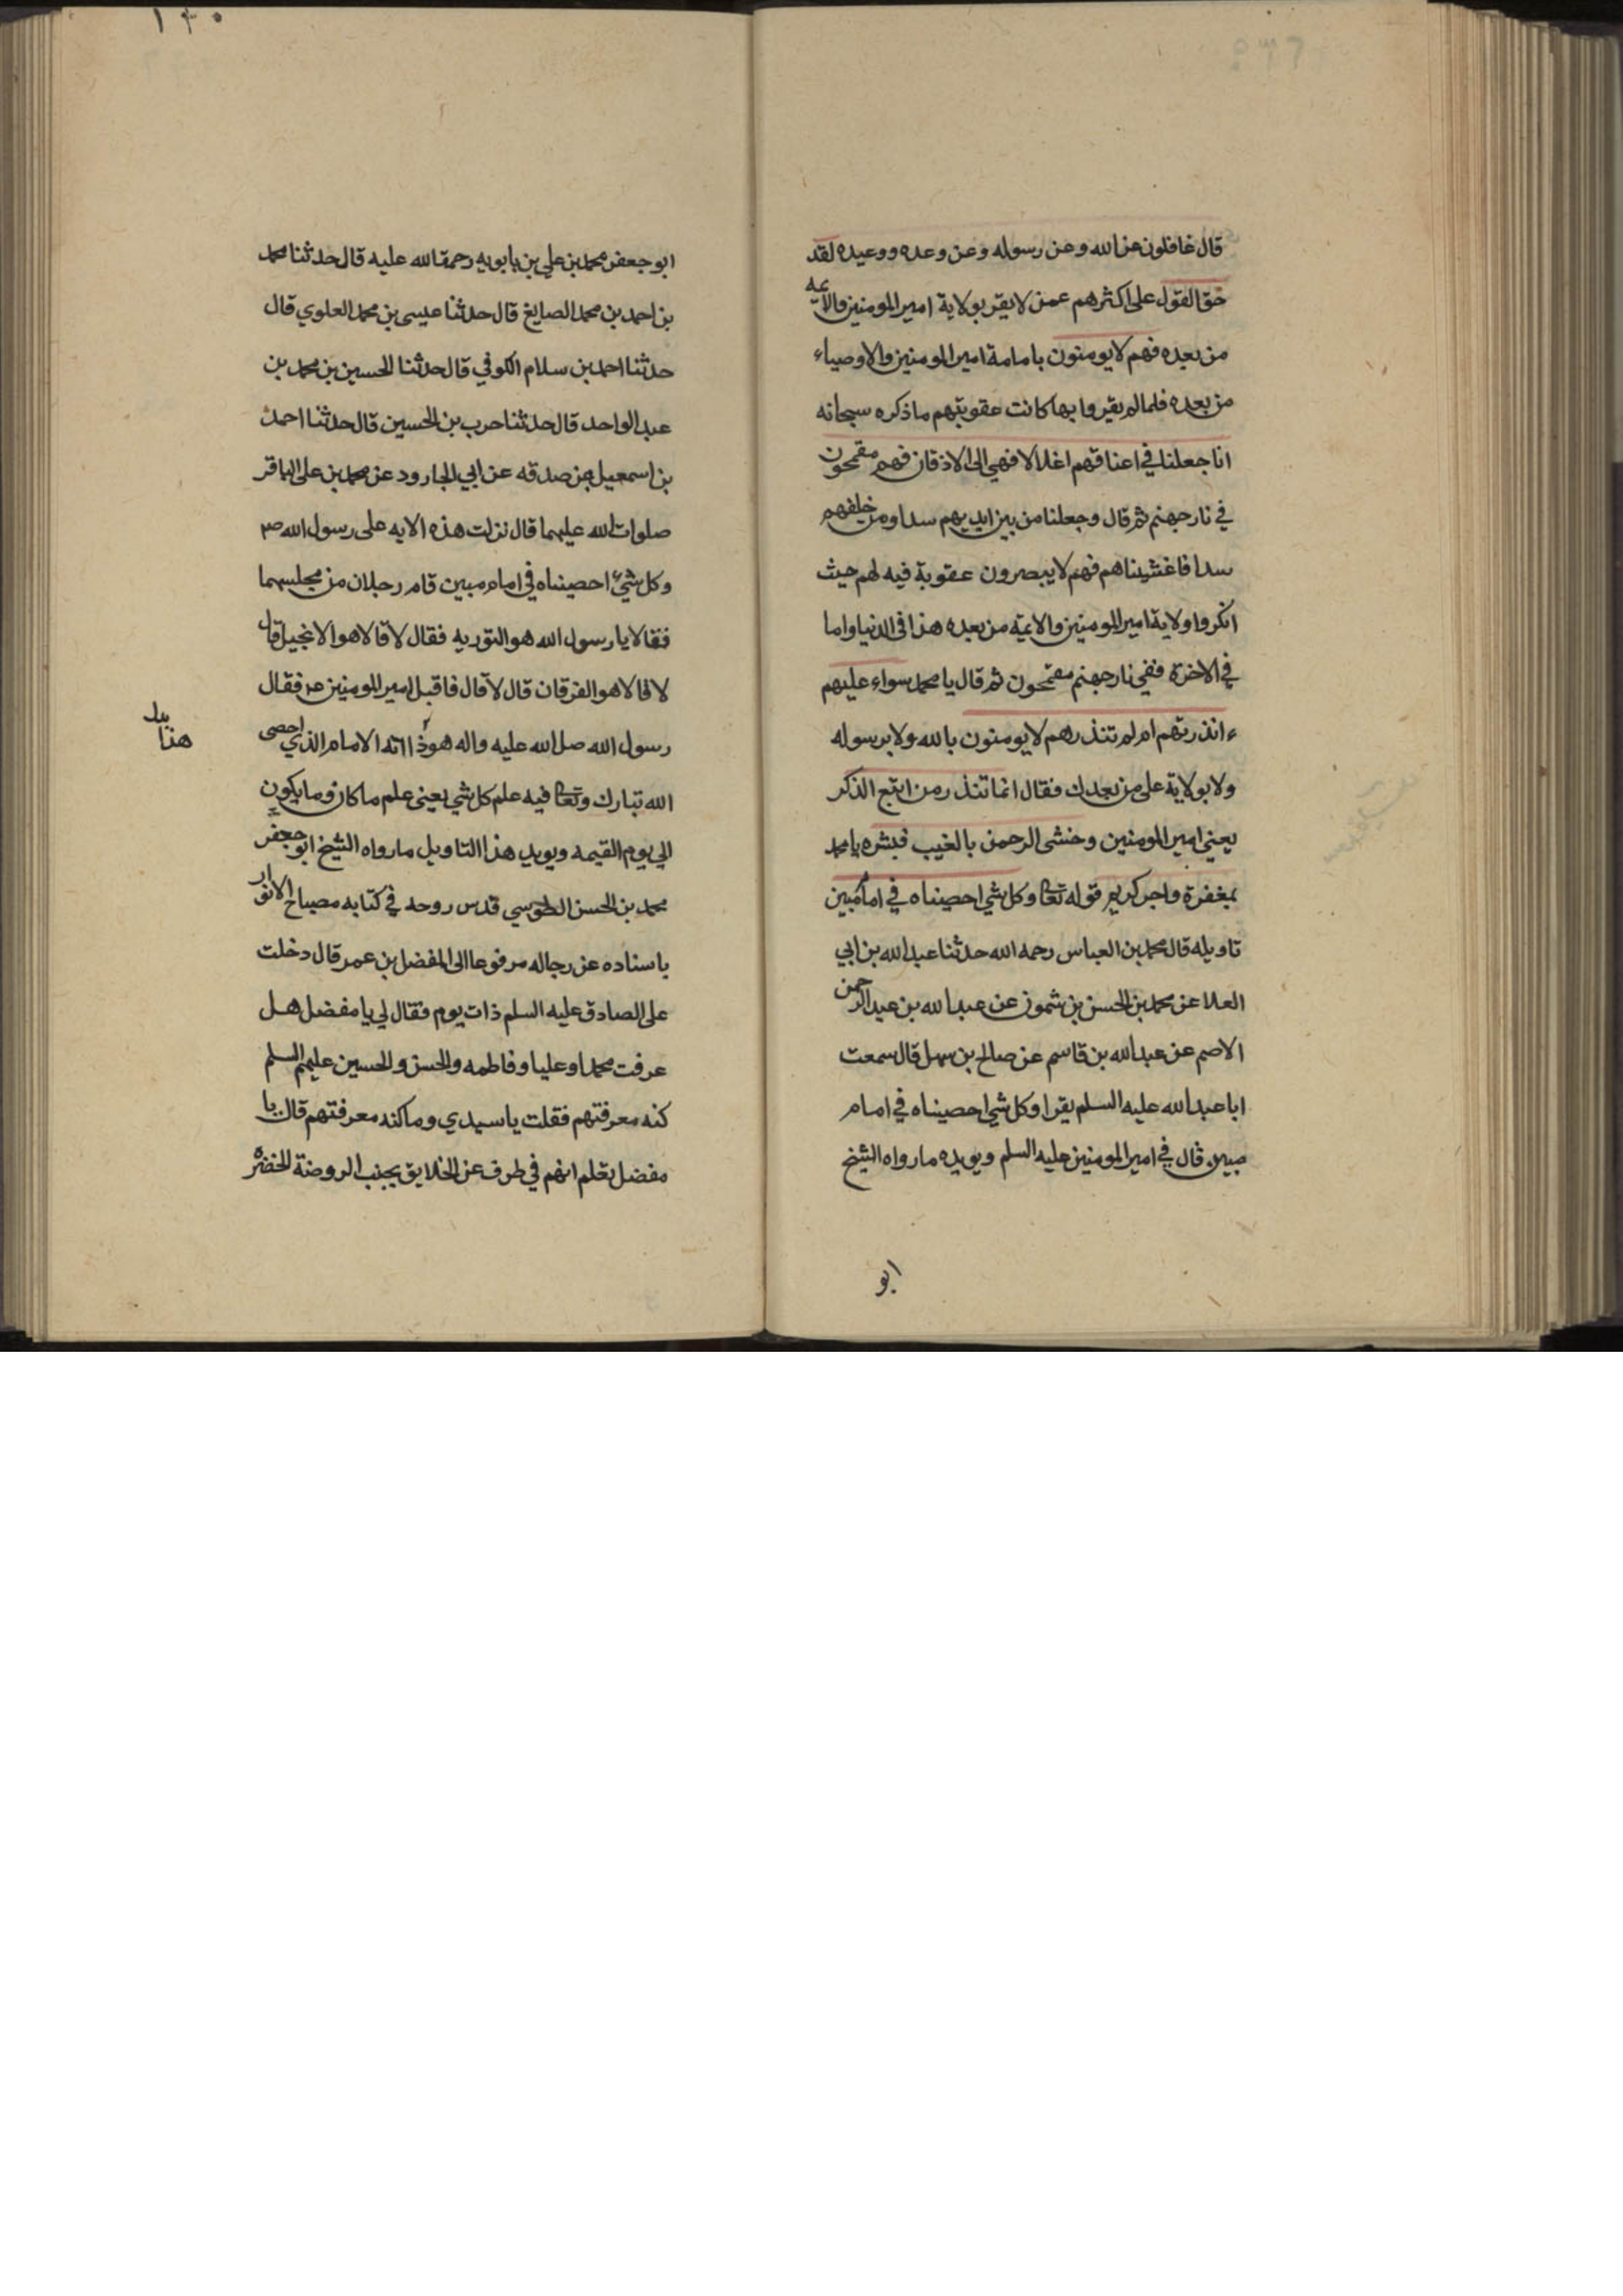 قال غافلون عن الله وعن رسوله وعن وعده ووعيده لقد
حق القول على اكثرهم عمن لا يقر بولاية امير المومنين والائمه
من بعده فهم لا يومنون بامامة امير المومنين والاوصياء
من بعده فلما لم يقروا بها كانت عقوبتهم ما ذكره سبحانه
انا جعلنا في اعناقهم اغلالا فهي الى الاذقان فهم مقمحون
في نار جهنم ثم قال وجعلنا من بين ايديهم سدا ومن خلفهم
سدا فاغشيناهم فهم لا يبصرون عقوبة فيه لهم حيث
انكروا ولاية امير المومنين والايمة من بعده هذا في الدنيا واما
في الاخرة ففي نار جهنم مقمحون ثم قال يا محمد سواء عليهم
ءانذرتهم ام لم تنذرهم لا يومنون بالله ولا برسوله
ولا بولاية على من بعدك فقال انما تنذر من اتبع الذكر
يعني امير المومنين وخشى الرحمن بالغيب فبشره يا محمد
بمغفرة واجر كريم قوله تعا وكل شي احصيناه في امام مبين
تاويله قال محمد بن العباس رحمه الله حدثنا عبد الله بن ابي
العلا عن محمد بن الحسن بن شمون عن عبد الله بن عبد الرحمن
الاصم عن عبد الله بن قاسم عن صالح بن سهل قال سمعت
ابا عبد الله عليه السلم يقرا وكل شي احصيناه في امام
مبين قال في امير المومنين عليه السلم ويويده ما رواه الشيخ
ابو
١٣٠
ابو جعفر محمد بن علي بن بابويه رحمة الله عليه قال حدثنا محمد
بن احمد بن محمد الصايغ قال حدثنا عيسى بن محمد العلوي قال
حدثنا احمد بن سلام الكوفي قال حدثنا الحسين بن محمد بن
عبد الواحد قال حدثنا حرب بن الحسين قال حدثنا احمد
بن اسمعيل بن صدقه عن ابي الجارود عن محمد بن على الباقر
صلوات الله عليهما قال نزلت هذه الايه على رسول الله ص
وكل شيء احصيناه في امام مبين قام رجلان من مجلسهما
فقالا يا رسول الله هو التوريه فقال لا قالا هو الانجيل قال
لا قالا هو الفرقان قال لا قال فاقبل امير المومنين ع فقال
رسول الله صل الله عليه واله هو ذا انه الامام الذي احصى
هذا
الله تبارك وتعا فيه علم كل شي يعنى علم ما كان وما يكون
الي يوم القيمه ويويد هذا التاويل ما رواه الشيخ ابو جعفر
محمد بن الحسن الطوسي قدس روحه في كتابه مصباح الانوار
باسناده عن رجاله مرفوعا الى المفضل بن عمر قال دخلت
على الصادق عليه السلم ذات يوم فقال لي يا مفضل هل
عرفت محمدا وعليا وفاطمه والحسن والحسين عليهم السلم
كنه معرفتهم فقلت يا سيدي وما كنه معرفتهم قال يا
مفضل تعلم انهم في طرف عن الخلايق بجنب الروضة الخضره